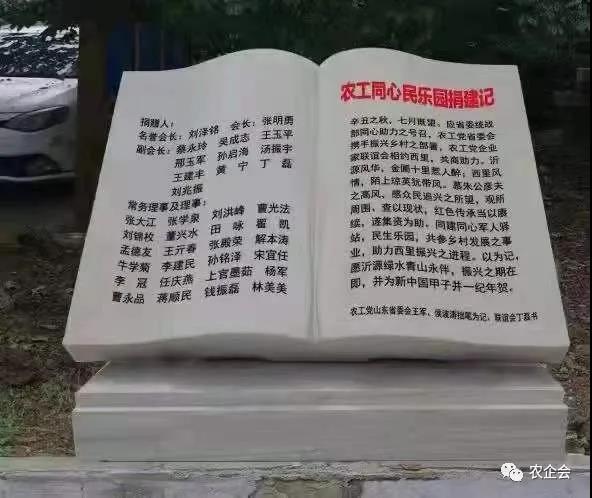 捐赠人：
名誉会长：刘泽铭 会长：张明勇
副会长：蔡永玲 吴成志 王玉平
邢玉军 孙启海 汤振宇
王建丰 黄宁 丁磊
刘兆振
常务理事及理事：
张大江 张学泉 刘洪峰 曹光法
刘锦枚 董兴水 田咏 翟凯
孟德友 王亓春 张殿荣 解本涛
牛学菊 李建民 孙铭泽 宋宜任
李冠 任庆燕 上官墨茹 杨军
曹永品 蒋顺民 钱振磊 林美美
农工同心民乐园捐建记
辛丑之秋，七月既望，应省委统战
部同心助力之号召，农工党省委会
携手振兴乡村之部署，农工党企业
家联谊会相约西里，共商助力。沂
源风华，金圃十里惹人醉；西里风
情，陌上琼英犹带风。慕朱公彦夫
之高风、感众民追兴之所望，观所
周围、查以现状，红色传承当以赓
续，遂集资为助、同建同心军人驿
站，民生乐园，共参乡村发展之事
业，助力西里振兴之进程。以为记，
愿沂源绿水青山永伴，振兴之期在
即，并为新中国甲子并一纪年贺。
农工党山东省委会王军、侯波涛拙笔为记，联谊会丁磊书
农企会